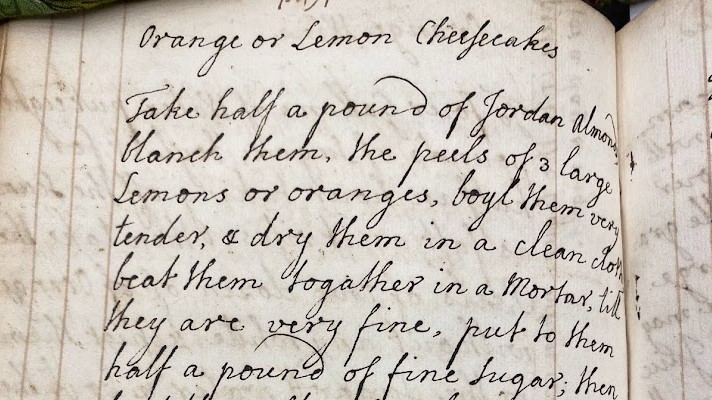 Orange or Lemon Cheesecakes
Take half a pound of Jordan almonds
blanch them, the peels of 3 large
Lemons or oranges, boyl them very
tender, & dry them in a clean cloth
beat them togather in a Mortar, till
they are very fine, put to them
half a pound of fine Sugar; then